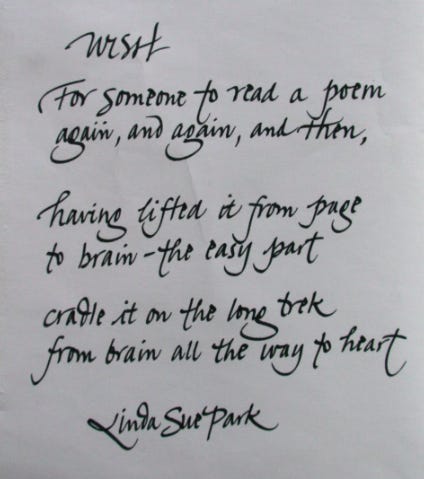 WISH
For someone to read a poem
again, and again, and then,
having lifted it from page
to brain – the easy part
cradle it on the long trek
from brain all the way to heart
Linda Sue Park